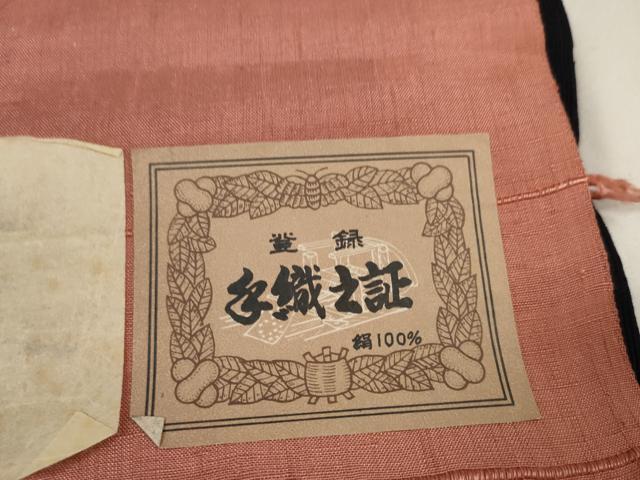 登録
手織之証
絹100%